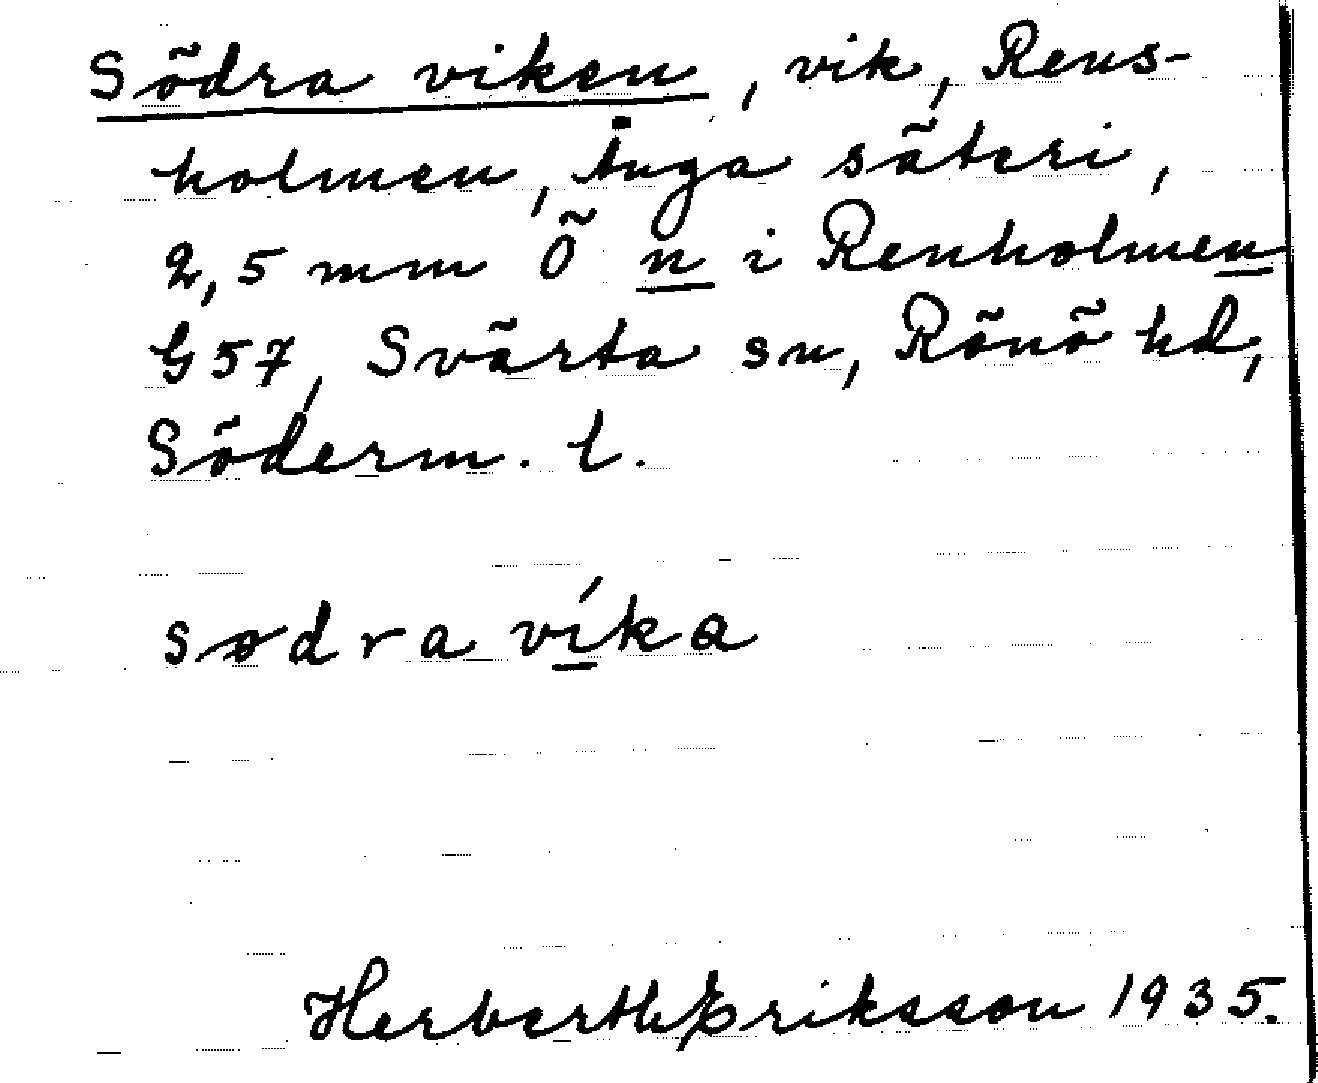 Södra viken, vik, Rens-
holmen, Inga säteri,
2,5 mm Ö n i Renholmen
G57, Svärta sn, Rönö hd,
Söderm. l.
sødra víka
Herberth Eriksson 1935.